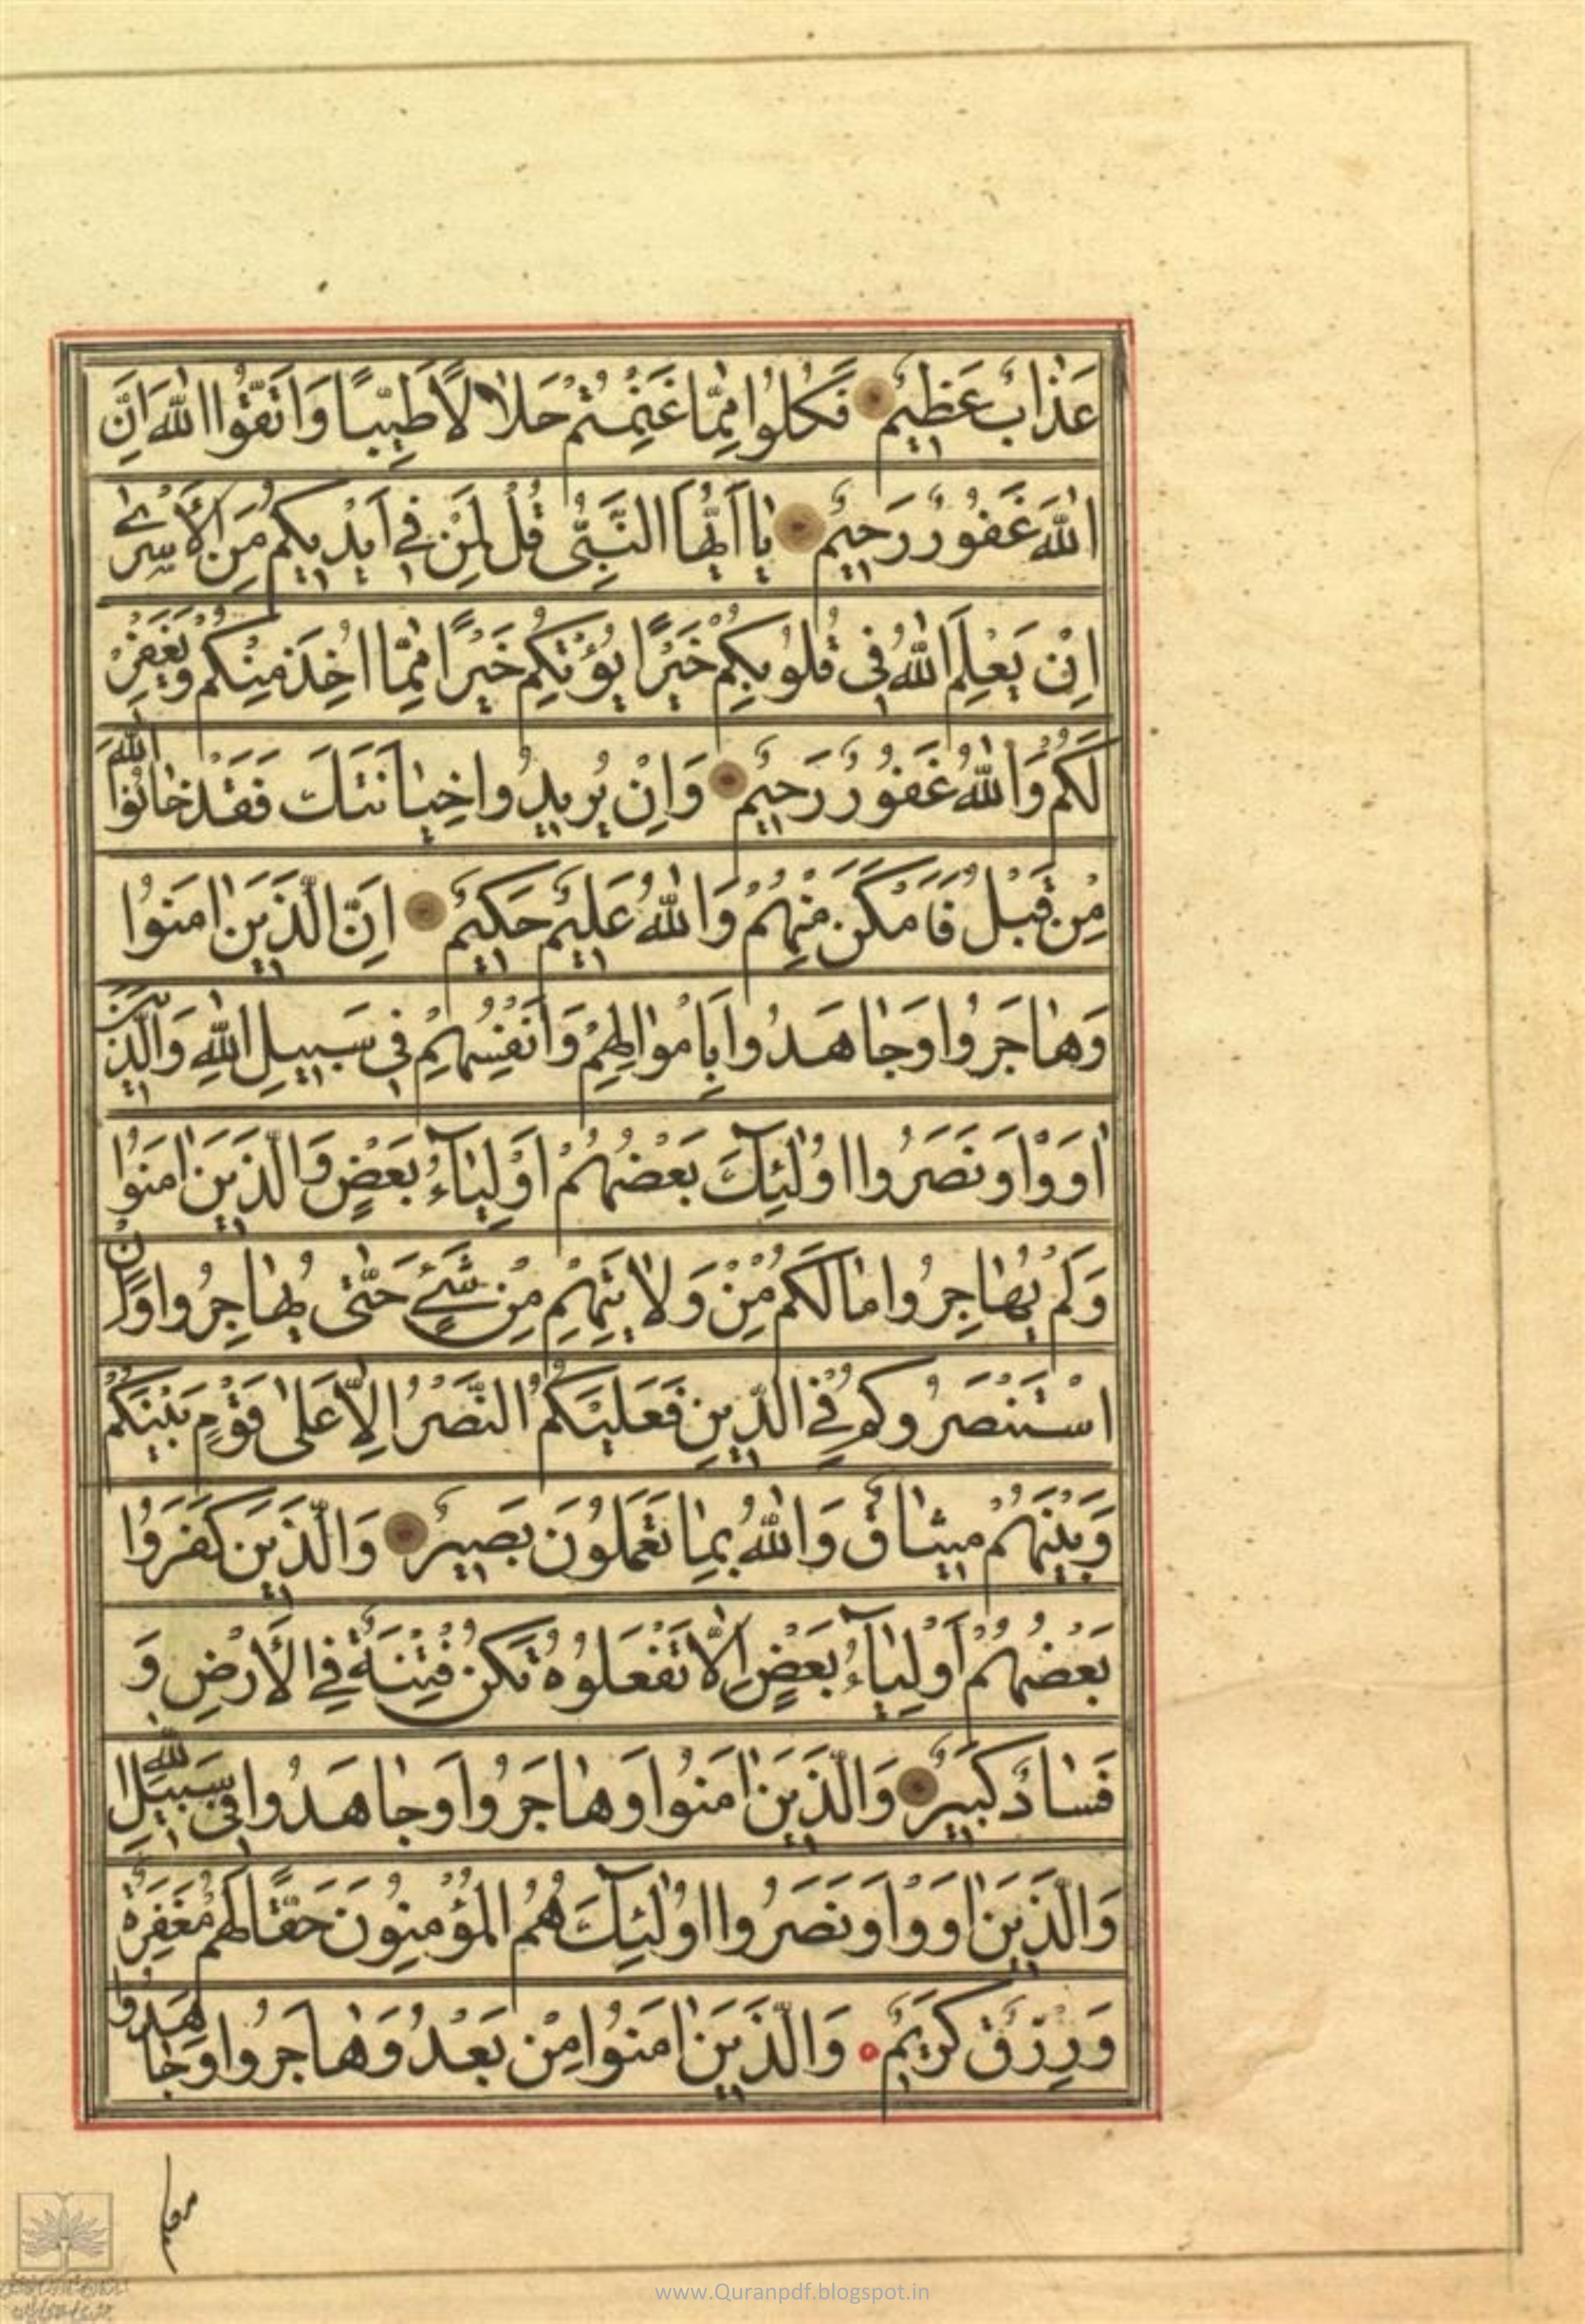 عَذَابٌ عَظِيمٌ فَكُلُوا مِمَّا غَنِمْتُمْ حَلَالًا طَيِّبًا وَاتَّقُوا اللَّهَ اِنَّ
اللَّهَ غَفُورٌ رَحِيمٌ يَا اَيُّهَا النَّبِيُّ قُلْ لِمَنْ فِي اَيْدِيكُمْ مِنَ الْأَسْرٰى
اِنْ يَعْلَمِ اللَّهُ فِي قُلُوبِكُمْ خَيْرًا يُؤْتِكُمْ خَيْرًا مِمَّا اُخِذَ مِنْكُمْ وَيَغْفِرْ
لَكُمْ وَاللَّهُ غَفُورٌ رَحِيمٌ وَاِنْ يُرِيدُوا خِيَانَتَكَ فَقَدْ خَانُوا اللَّهَ
مِنْ قَبْلُ فَاَمْكَنَ مِنْهُمْ وَاللَّهُ عَلِيمٌ حَكِيمٌ اِنَّ الَّذِينَ اٰمَنُوا
وَهَاجَرُوا وَجَاهَدُوا بِاَمْوَالِهِمْ وَاَنْفُسِهِمْ فِي سَبِيلِ اللَّهِ وَالَّذِينَ
اٰوَوْا وَنَصَرُوا اُولٰئِكَ بَعْضُهُمْ اَوْلِيَاءُ بَعْضٍ وَالَّذِينَ اٰمَنُوا
وَلَمْ يُهَاجِرُوا مَا لَكُمْ مِنْ وَلَايَتِهِمْ مِنْ شَيْءٍ حَتّٰى يُهَاجِرُوا وَاِنِ
اسْتَنْصَرُوكُمْ فِي الدِّينِ فَعَلَيْكُمُ النَّصْرُ اِلَّا عَلٰى قَوْمٍ بَيْنَكُمْ
وَبَيْنَهُمْ مِيثَاقٌ وَاللَّهُ بِمَا تَعْمَلُونَ بَصِيرٌ وَالَّذِينَ كَفَرُوا
بَعْضُهُمْ اَوْلِيَاءُ بَعْضٍ اِلَّا تَفْعَلُوهُ تَكُنْ فِتْنَةٌ فِي الْأَرْضِ وَ
فَسَادٌ كَبِيرٌ وَالَّذِينَ اٰمَنُوا وَهَاجَرُوا وَجَاهَدُوا فِي سَبِيلِ اللَّهِ
وَالَّذِينَ اٰوَوْا وَنَصَرُوا اُولٰئِكَ هُمُ الْمُؤْمِنُونَ حَقًّا لَهُمْ مَغْفِرَةٌ
وَرِزْقٌ كَرِيمٌ وَالَّذِينَ اٰمَنُوا مِنْ بَعْدُ وَهَاجَرُوا وَجَاهَدُوا
معكم
www.Quranpdf.blogspot.in